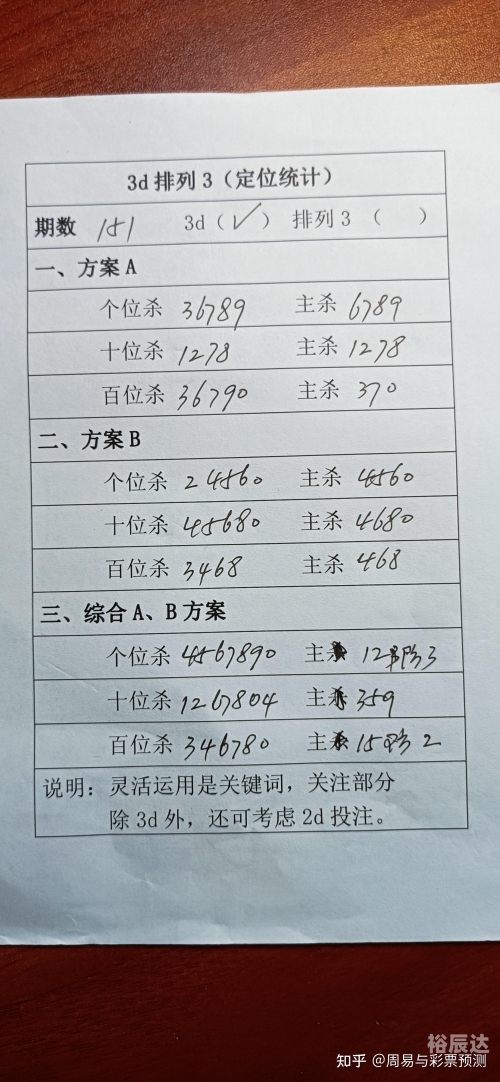 3d 排列 3（定位统计）
期数 151 3d（✓） 排列 3 （ ）
一、方案 A
个位杀 36789 主杀 6789
十位杀 1278 主杀 1278
百位杀 36790 主杀 370
二、方案 B
个位杀 24560 主杀 4560
十位杀 45680 主杀 4680
百位杀 3468 主杀 468
三、综合 A、B 方案
个位杀 4567890 主 12 防3
十位杀 1267804 主 359
百位杀 346780 主 15防2
说明：灵活运用是关键词，关注部分
除 3d 外，还可考虑 2d 投注。
裕辰达
知乎 @周易与彩票预测